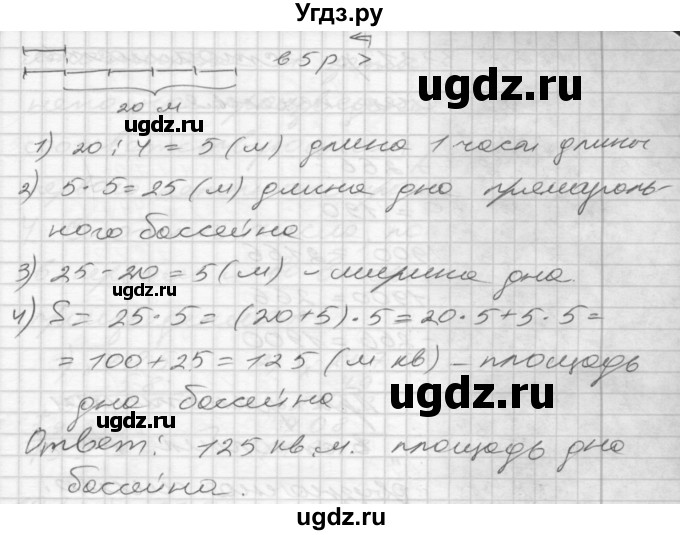 Угдз.ру
в 5 р >
20 м
1) 20 : 4 = 5 (м) длина 1 части длины
2) 5 · 5 = 25 (м) длина дна прямауголь-
ного бассейна
3) 25 - 20 = 5 (м) - ширина дна.
4) S = 25 · 5 = (20 + 5) · 5 = 20 · 5 + 5 · 5 =
= 100 + 25 = 125 (м кв) - площадь
дна бассейна
Ответ: 125 кв.м. площадь дна
бассейна.
ugdz.ru
ugdz.ru
ugdz.ru
ugdz.ru
ugdz.ru
ugdz.ru
ugdz.ru